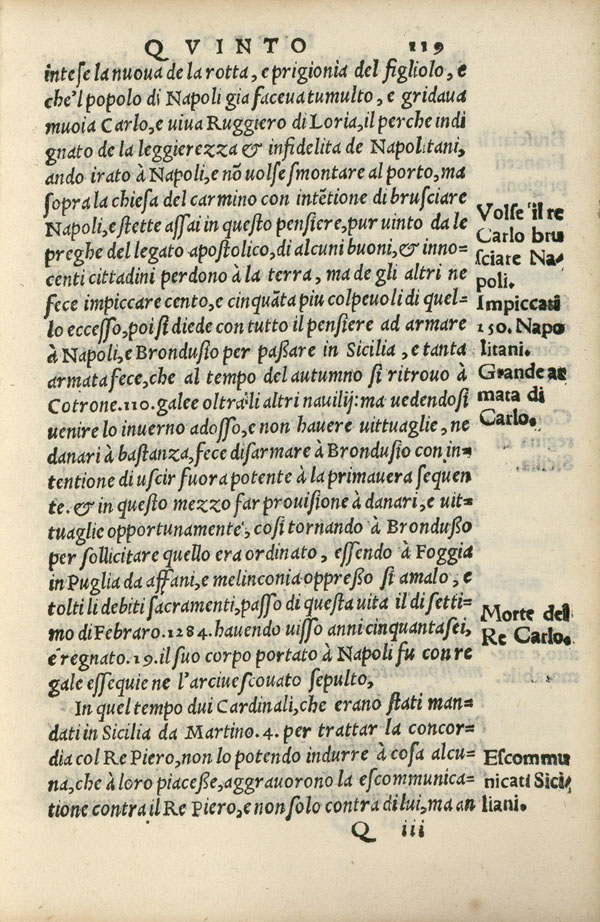 QVINTO 119
inteſe la nuoua de la rotta, e prigionia del figliolo, e
che'l popolo di Napoli gia faceua tumulto, e gridaua
muoia Carlo, e uiua Ruggiero di Loria, il perche indi
gnato de la leggierezza & infidelita de Napolitani,
ando irato à Napoli, e nõ uolse ſmontare al porto, ma
ſopra la chieſa del carmino con intẽtione di bruſciare
Napoli, e ſtette aſſai in queſto penſiere, pur uinto da le
preghe del legato apoſtolico, di alcuni buoni, & inno-
centi cittadini perdono à la terra, ma de gli altri ne
fece impiccare cento, e cinquãta piu colpeuoli di quel-
lo ecceſſo, poi ſi diede con tutto il penſiere ad armare
à Napoli, e Bronduſio per paßare in Sicilia, e tanta
armata fece, che al tempo del autumno ſi ritrouò à
Cotrone .110. galee oltra li altri nauilij: ma uedendoſi
uenire lo inuerno adoſſo, e non hauere uittuaglie, ne
danari à baſtanza, fece diſarmare à Bronduſio con in-
tentione di uſcir fuora potente à la primauera ſequen
te. & in queſto mezzo far prouiſione à danari, e uit-
tuaglie opportunamente, coſi tornando à Brondußo
per ſollicitare quello era ordinato, eſſendo à Foggia
in Puglia da affani, e melinconia oppreßo ſi amalo, e
tolti li debiti ſacramenti, paſſo di queſta uita il di ſetti-
mo di Febraro .1284. hauendo uiſſo anni cinquanta ſei,
e regnato .19. il ſuo corpo portato à Napoli fu con re
gale eſſequie ne l'arciueſcouato ſepulto,
In quel tempo dui Cardinali, che erano ſtati man-
dati in Sicilia da Martino .4. per trattar la concor-
dia col Re Piero, non lo potendo indurre à coſa alcu-
na, che à loro piaceße, aggrauorono la eſcommunica-
tione contra il Re Piero, e non ſolo contra di lui, ma an
Q iii
Volſe il re
Carlo bru
ſciare Na-
poli.
Impiccati
150. Napo
litani.
Grande ar
mata di
Carlo.
Morte del
Re Carlo.
Eſcommu
nicati Sici
liani.